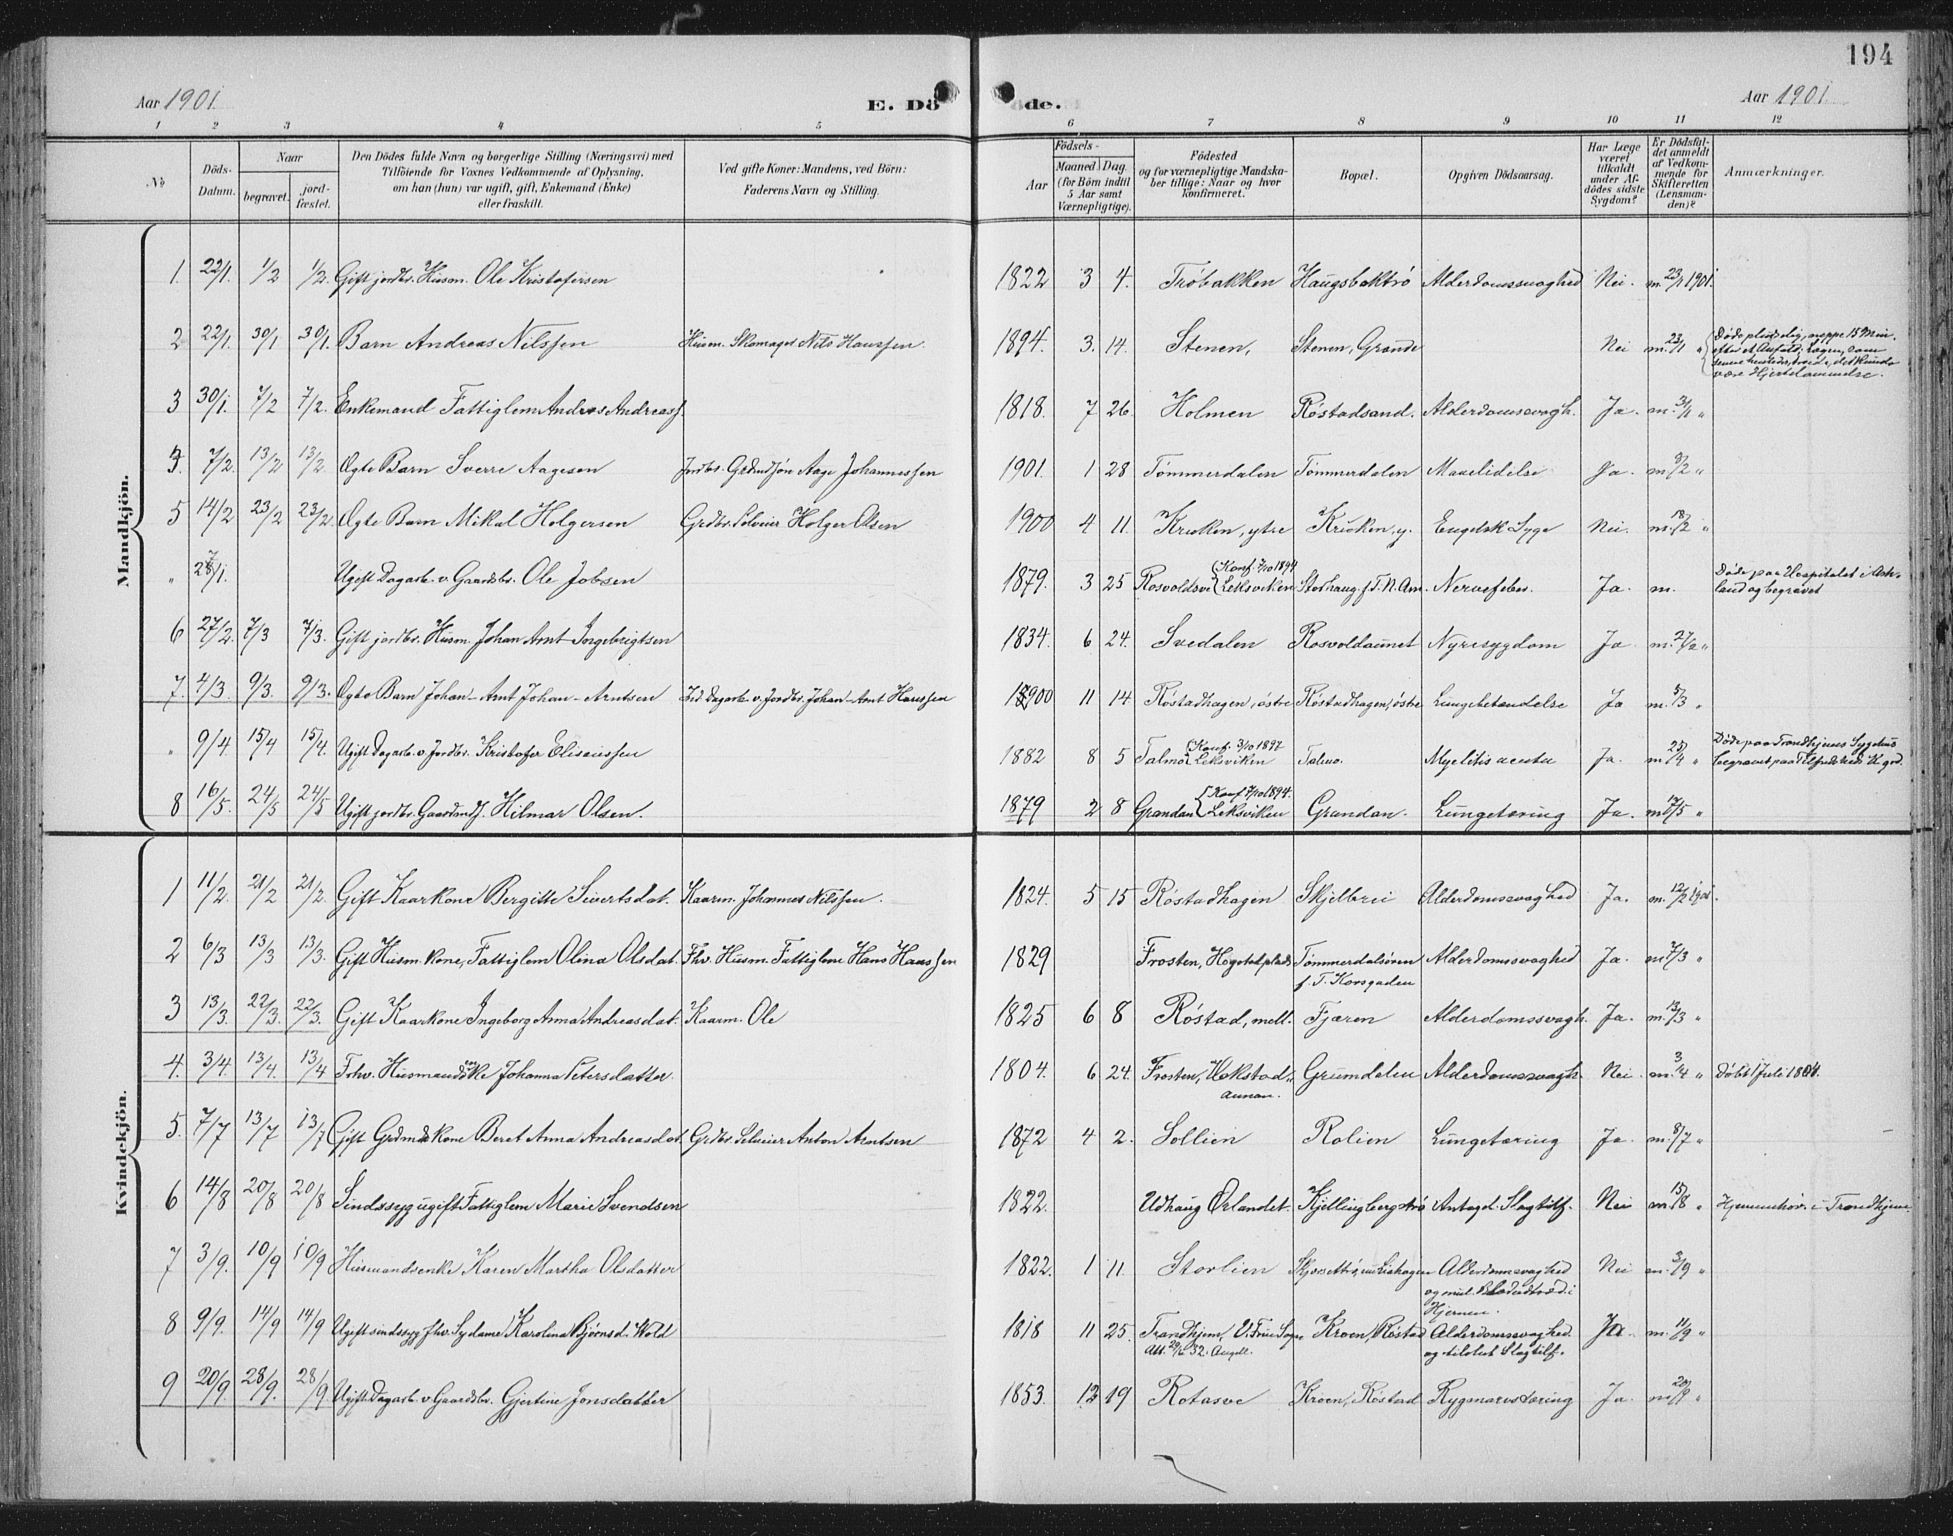 194
Aar 1901. E. Döde. Aar 1901.
1 2 3 4 5 6 7 8 9 10 11 12
No
Döds-Datum.
Naar
begravet.
jord-fæstet.
Den Dödes fulde Navn og borgerlige Stilling (Næringsvei) med
Tilföiende for Voxnes Vedkommende af Oplysning,
om han (hun) var ugift, gift, Enkemand (Enke)
eller fraskilt.
Ved gifte Koner: Mandens, ved Börn:
Faderens Navn og Stilling.
Födsels-
Aar
Maaned Dag
(for Börn indtil
5 Aar samt
Værnepligtige).
Födested
og for værnepligtige Mandska-
ber tillige: Naar og hvor
konfirmeret.
Bopæl.
Opgiven Dödsaarsag.
Har Læge
været
tilkaldt
under Af-
dödes sidste
Sygdom?
Er Dödsfal-
det anmeldt
af Vedkom-
mende for
Skifteretten
(Lensman-
den)?
Anmærkninger.
Mandkjön.
1. 22/1. 1/2 1/2. Gift jordbr. Husm. Ole Kristofersen 1822 3 4. Tröbakken Haugsbaktrö Alderdomssvaghed Nei. m. 23/1 1901.
2 22/1. 30/1 30/1. Barn Andreas Nilssen Husm. Skomager Nils Hanssen. 1894. 3. 14. Stenen, Stenen, Grande Nei m. 23/1 " Döde pludselig, neppe 15 Min.
være Hjertelammelse.
3 30/1. 7/2 7/2. Enkemand Fattiglem Andreas Andreass. 1818. 7 26. Holmen Röstadsand. Alderdomssvagh. Ja. m. 31/1 "
4. 7/2. 13/2 13/2. Ægte Barn Sverre Aagesen Jordbr. Grdmdsön Aage Johannessen 1901. 1 28 Tömmerdalen Tömmerdalen Mavelidelse Ja. m. 8/2 "
5 14/2 23/2 23/2. Ægte Barn Mikal Holgersen Grdbr. Selveier Holger Olsen 1900 4 11. Kruken, ytre Kruken, y. Engelsk Syge Nei. m. 18/2 "
" 27/1. Ugift Dagarb. v. Gaardsbr. Ole Jobsen 1879. 3 25 Rosvoldsve {Konf. 7/10 1894 Leksviken Storhaug f. T. N. Am. Nervefeber. Ja. m. Döde paa Hospitalet i Ash-
land og begravet
6 27/2. 7/3 7/3. Gift jordbr. Husm. Johan Arnt Ingebrigtsen 1834. 6 24. Svedalen Rosvoldaunet Nyresygdom Ja m. 27/2 "
7. 4/3. 9/3. 9/3. Ægte Barn Johan-Arnt Johan-Arntsen Dagarb. v. Jordbr. Johan-Arnt Hanssen 1900 11 14 Röstadhagen, östre Röstadhagen, östre Lungebetændelse Ja m. 5/3 "
" 9/4 15/4 15/4. Ugift Dagarb. v. Jordbr. Kristofer Eliseussen 1882 8 5 Talmo {Konf. 3/10 1897 Leksviken Talmo. Myelitis acuta Ja. m. "  Döde paa Trondhjems Sygehus
begravet paa
8 16/5. 24/5 24/5 Ugift jordbr. Gaardmds. Hilmar Olsen. 1879 2 8 Grandan {Konf. 7/10 1894. Leksviken Grandan. Lungetæring Ja. m. "
Kvindekjön.
1 11/2. 21/2 21/2. Gift Kaarkone Bergitte Sivertsdat. Kaarm. Johannes Nilssen. 1824. 5 15 Röstadhagen Skjelbrei Alderdomssvaghed Ja. m. 12/2 1901.
2 6/3 13/3 13/3. Gift Husm. kone, Fattiglem Olina Olsdat. Fhv. Husm. Fattiglem Hans Hanssen 1829 Frosten, Hogstadplads Tömmerdalsören
f. T. Korsgaden Alderdomssvaghed Ja. m. 7/3 "
3 13/3. 22/3. 22/3. Gift Kaarkone Ingeborg Anna Andreasdat. Kaarm. Ole 1825 6 8 Röstad, mell. Fjæren Alderdomssvagh. Ja. m. 13/3 "
4. 3/4. 13/4. 13/4 Frhv. Husmandsenke Johanna Petersdatter. 1804. 6 24. Frosten, Hokstad,,
aunan. Grumdalen Alderdomssvagh. Nei. m. 3/4 " Döbt 1 Juli 1804.
5. 7/7 13/7 13/7 Gift Grdmdskone Beret Anna Andreasdat. Grdbr. Selveier Anton Arntsen 1872 4 2. Sollien Rolien Lungetæring Ja. m. 8/7 "
6 14/8 20/8 20/8 Sindssyg ugift Fattiglem Marie Svendsen 1822. Udhaug Örlandet Kjellingbergströ Antagel. Slagtilf. Nei m. 15/8 " Hjemmehör. i Trondhjem.
7 3/9. 10/9 10/9 Husmandsenke Karen Martha Olsdatter 1822. 1 11. Storlien Alderdomssvaghed
og mul. Blodudtræd. i
Hjernen. Nei m. 3/9 "
8 9/9. 14/9 14/9 Ugift sindssyg fhv. Sydame Karolina Björnsd. Wold 1818 11 25. Trondhjem, V. Frue Sogn
Att. Kroen, Röstad Alderdomssvaghed
og tilstöt Slagtilf. Ja. m. 11/9 "
9 20/9. 28/9. 28/9 Ugift Dagarb. v. Gaardsbr. Gjertine Jonsdatter 1853. 12 19 Rotasve Kroen, Röstad Rygmarvstæring Ja m. 20/9 "